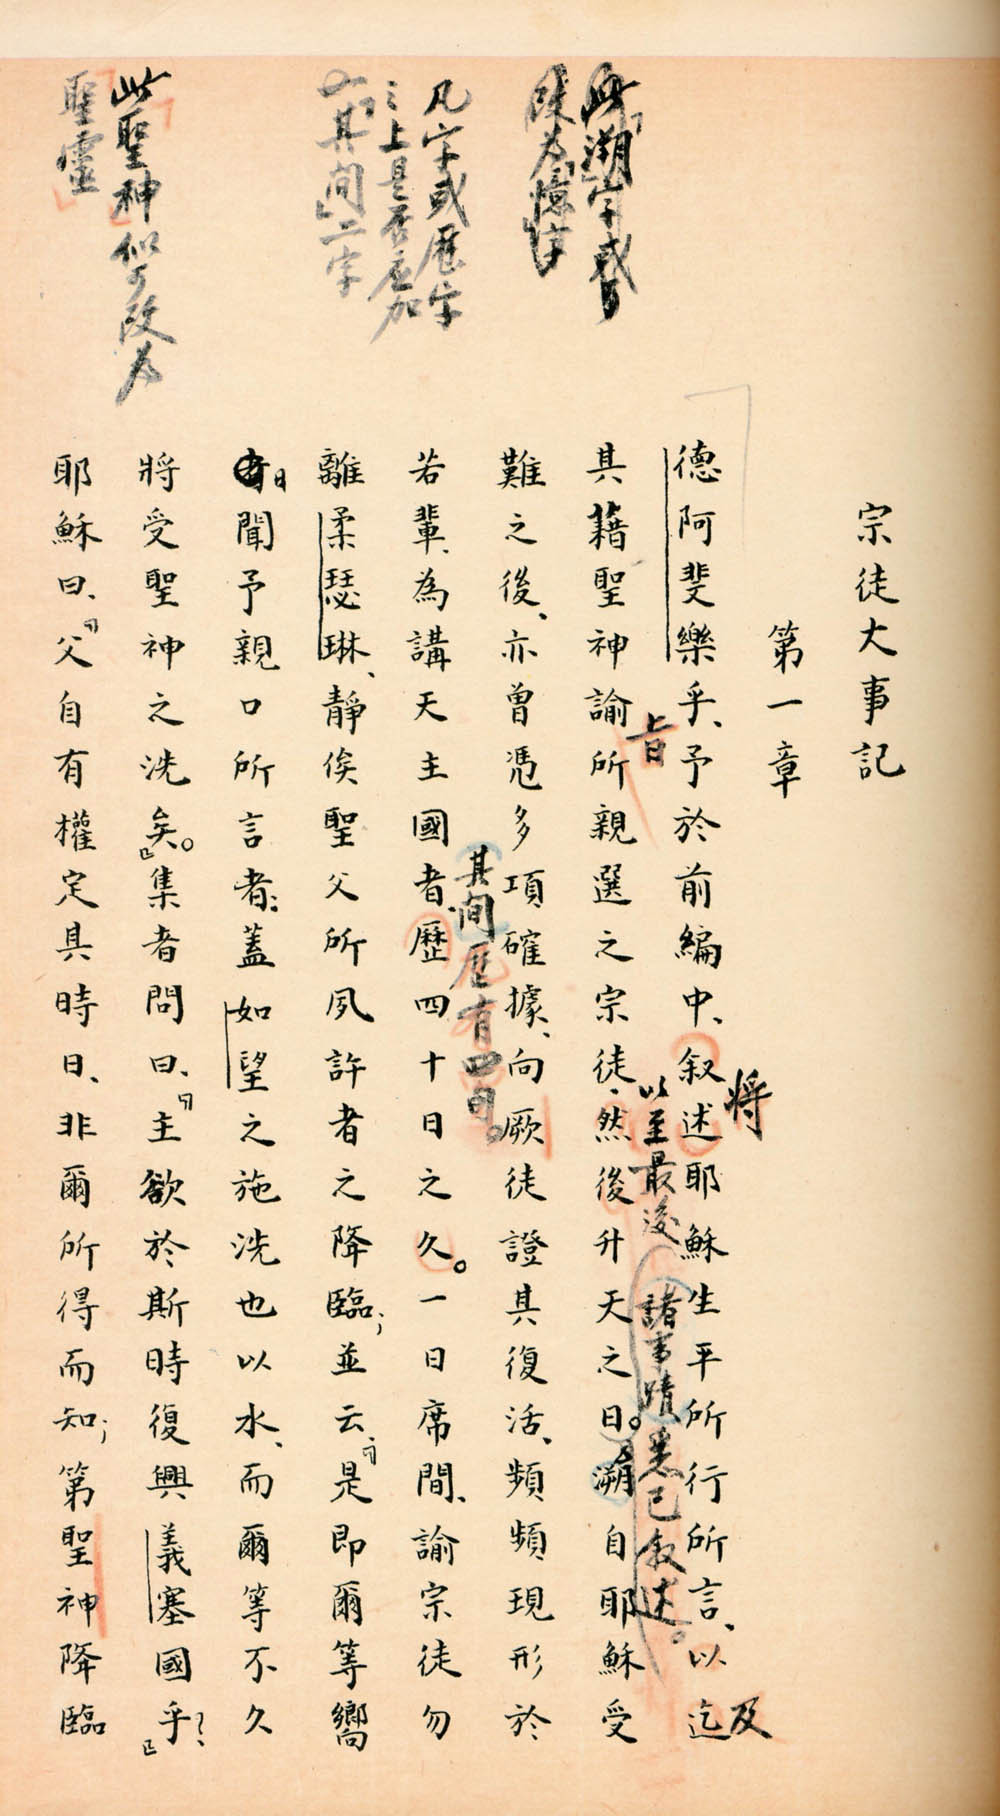 宗徒大事記
第一章
德阿斐樂乎、予於前編中、叙述耶穌生平所行所言、以迄
將
及
以至最後諸事蹟悉已叙述。
其藉聖神諭所親選之宗徒、然後升天之日。溯自耶穌受
旨
難之後、亦曾憑多項確據、向厥徒證其復活、頻頻現形於
其間歷有四旬。
若輩、為講天主國者、歷四十日之久。一日席間、諭宗徒勿
離柔瑟琳、靜俟聖父所夙許者之降臨；並云、「是即爾等嚮
日聞予親口所言者：蓋如望之施洗也以水、而爾等不久
將受聖神之洗矣。」集者問曰、「主欲於斯時復興義塞國乎？」
耶穌曰、「父自有權定其時日、非爾所得而知；第聖神降臨
此「溯」字或
為「憶」字
凡字或歷字
之上是否應加
「其間」二字
此「聖神」似可改為
「聖靈」